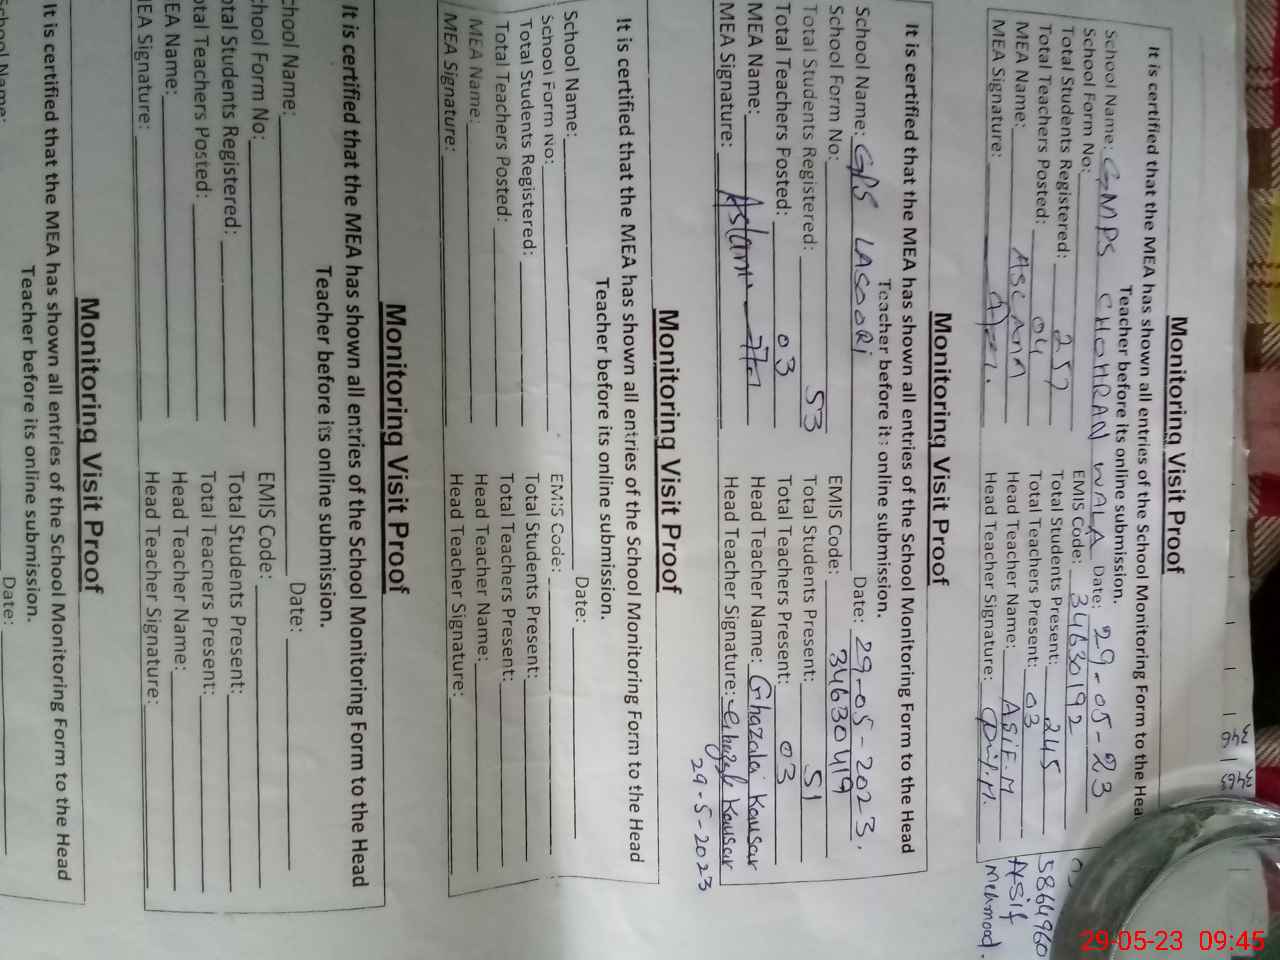 Monitoring Visit Proof
It is certified that the MEA has shown all entries of the School Monitoring Form to the Hea
Teacher before its online submission.
School Name: GMPS CHOHRAN WALA Date: 29-05-23
School Form No: EMIS Code: 34630192
Total Students Registered: 257 Total Students Present: 245
Total Teachers Posted: 04 Total Teachers Present: 03
MEA Name: ASLAM Head Teacher Name: ASIF.M
MEA Signature: Head Teacher Signature:
5864960
Asif
Mehmood.
346 3463
Monitoring Visit Proof
It is certified that the MEA has shown all entries of the School Monitoring Form to the Head
Teacher before its online submission.
School Name: GPS LASOORI Date: 29-05-2023.
School Form No: EMIS Code: 34630419
Total Students Registered: 53 Total Students Present: 51
Total Teachers Posted: 03 Total Teachers Present: 03
MEA Name: Head Teacher Name: Ghazala Kousar
MEA Signature: Aslam Head Teacher Signature: Ghazala Kousar
29-5-2023
Monitoring Visit Proof
It is certified that the MEA has shown all entries of the School Monitoring Form to the Head
Teacher before its online submission.
School Name: Date:
School Form No: EMIS Code:
Total Students Registered: Total Students Present:
Total Teachers Posted: Total Teachers Present:
MEA Name: Head Teacher Name:
MEA Signature: Head Teacher Signature:
Monitoring Visit Proof
It is certified that the MEA has shown all entries of the School Monitoring Form to the Head
Teacher before its online submission.
chool Name: Date:
chool Form No: EMIS Code:
otal Students Registered: Total Students Present:
otal Teachers Posted: Total Teachers Present:
EA Name: Head Teacher Name:
EA Signature: Head Teacher Signature:
Monitoring Visit Proof
It is certified that the MEA has shown all entries of the School Monitoring Form to the Head
Teacher before its online submission.
chool Name: Date:
29-05-23 09:45